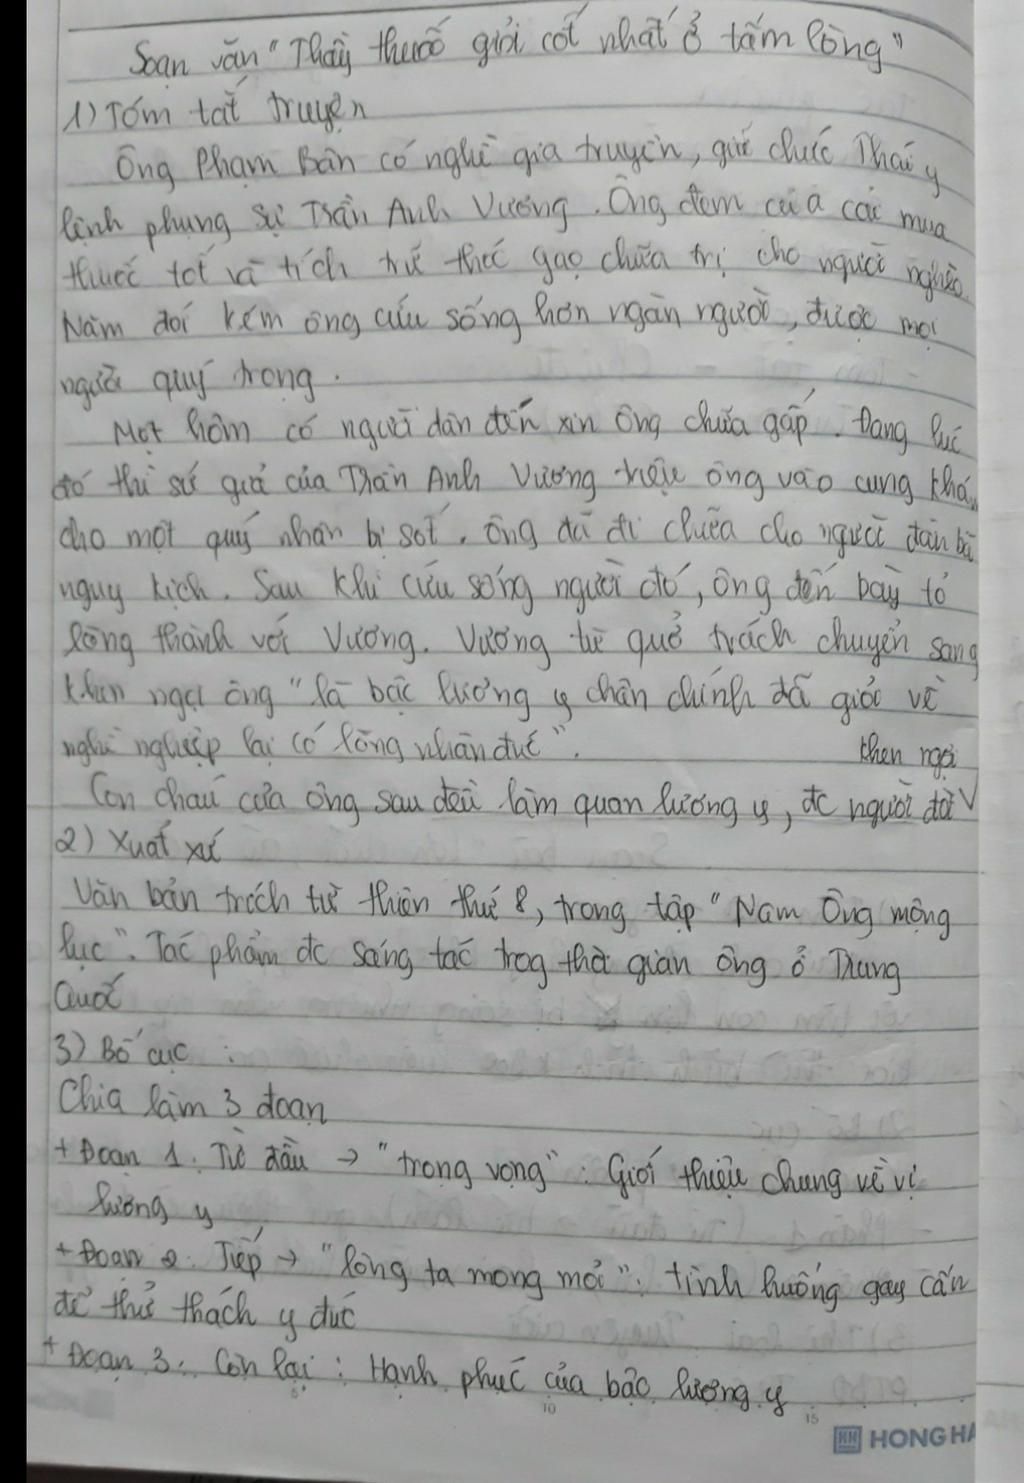 Soạn văn "Thầy thuốc giỏi cốt nhất ở tấm lòng"
1) Tóm tắt truyện
Ông Phạm Bân có nghề gia truyền, giữ chức Thái y
lệnh phụng sự Trần Anh Vương. Ông đem của cải mua
thuốc tốt và tích trữ thóc gạo chữa trị cho người nghèo.
Năm đói kém ông cứu sống hơn ngàn người, được mọi
người quý trọng.
Một hôm có người dân đến xin ông chữa gấp. Đang lúc
đó thì sứ giả của Trần Anh Vương triệu ông vào cung khá
cho một quý nhân bị sốt. Ông đã đi chữa cho người đàn bà
nguy kịch. Sau khi cứu sống người đó, ông đến bày tỏ
lòng thành với Vương. Vương từ quở trách chuyển sang
khen ngợi ông "là bậc lương y chân chính đã giỏi về
nghề nghiệp lại có lòng nhân đức".
khen ngợi
Con cháu của ông sau đều làm quan lương y, đc người đời V
2) Xuất xứ
Văn bản trích từ thiên thứ 8, trong tập "Nam Ông mộng
lục". Tác phẩm đc sáng tác trog thời gian ông ở Trung
Quốc
3) Bố cục :
Chia làm 3 đoạn
+ Đoạn 1. Từ đầu → "trọng vọng" : Giới thiệu chung về vị
lương y
+ Đoạn 2. Tiếp → "lòng ta mong mỏi" : tình huống gay cấn
để thử thách y đức
+ Đoạn 3. Còn lại : Hạnh phúc của bậc lương y
5 10 15
HONG HA